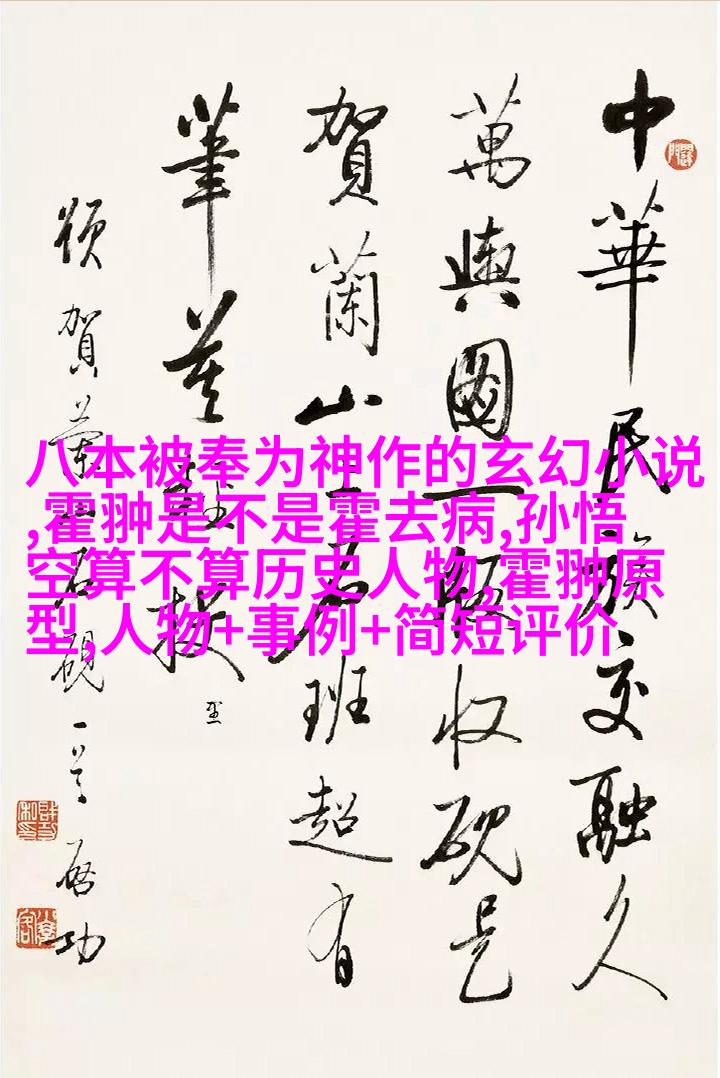 中華民族交融久
萬輿圖一版收硯是
賀蘭山上石班超有
筆莫輕投 里
賀蘭石硯一首 啓功
八本被奉为神作的玄幻小说
,霍翀是不是霍去病,孙悟
空算不算历史人物,霍翀原
型,人物+事例+简短评价